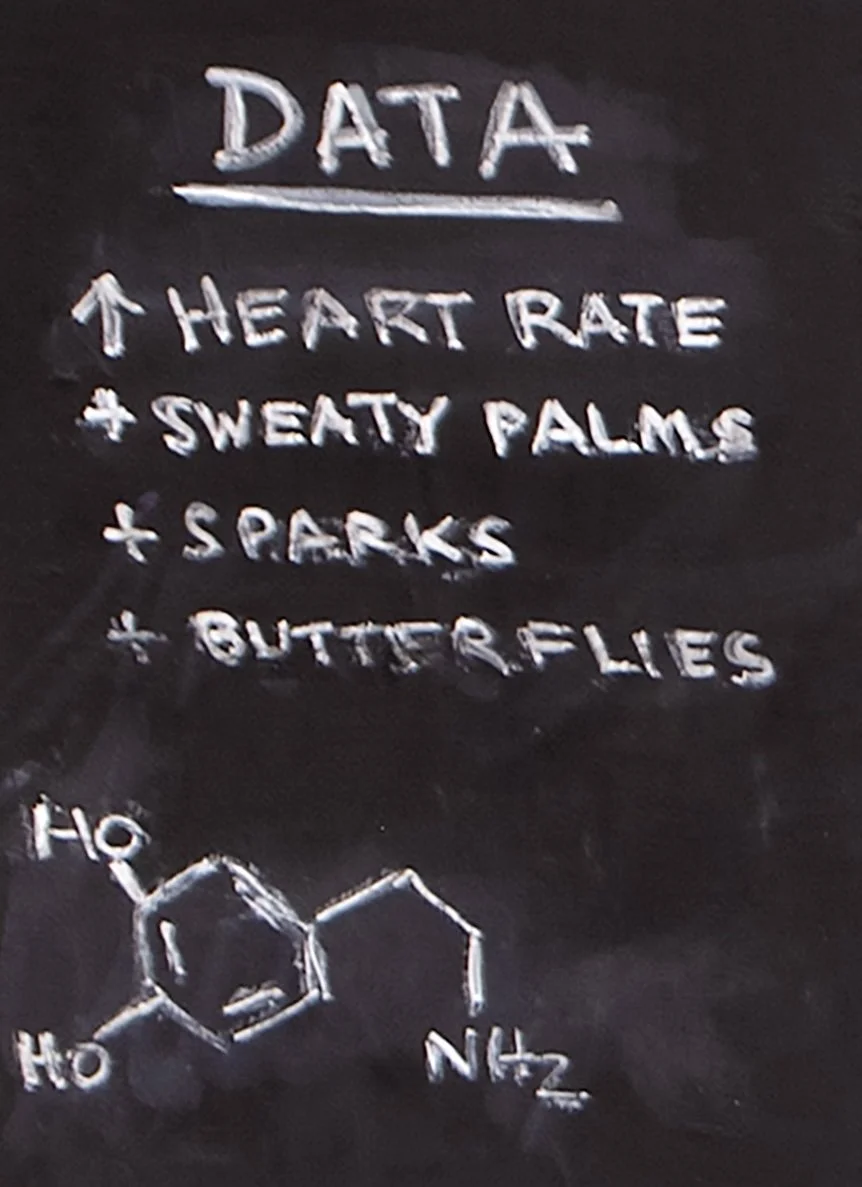 DATA
↑ HEART RATE
+ SWEATY PALMS
+ SPARKS
+ BUTTERFLIES
HO
HO
NH2